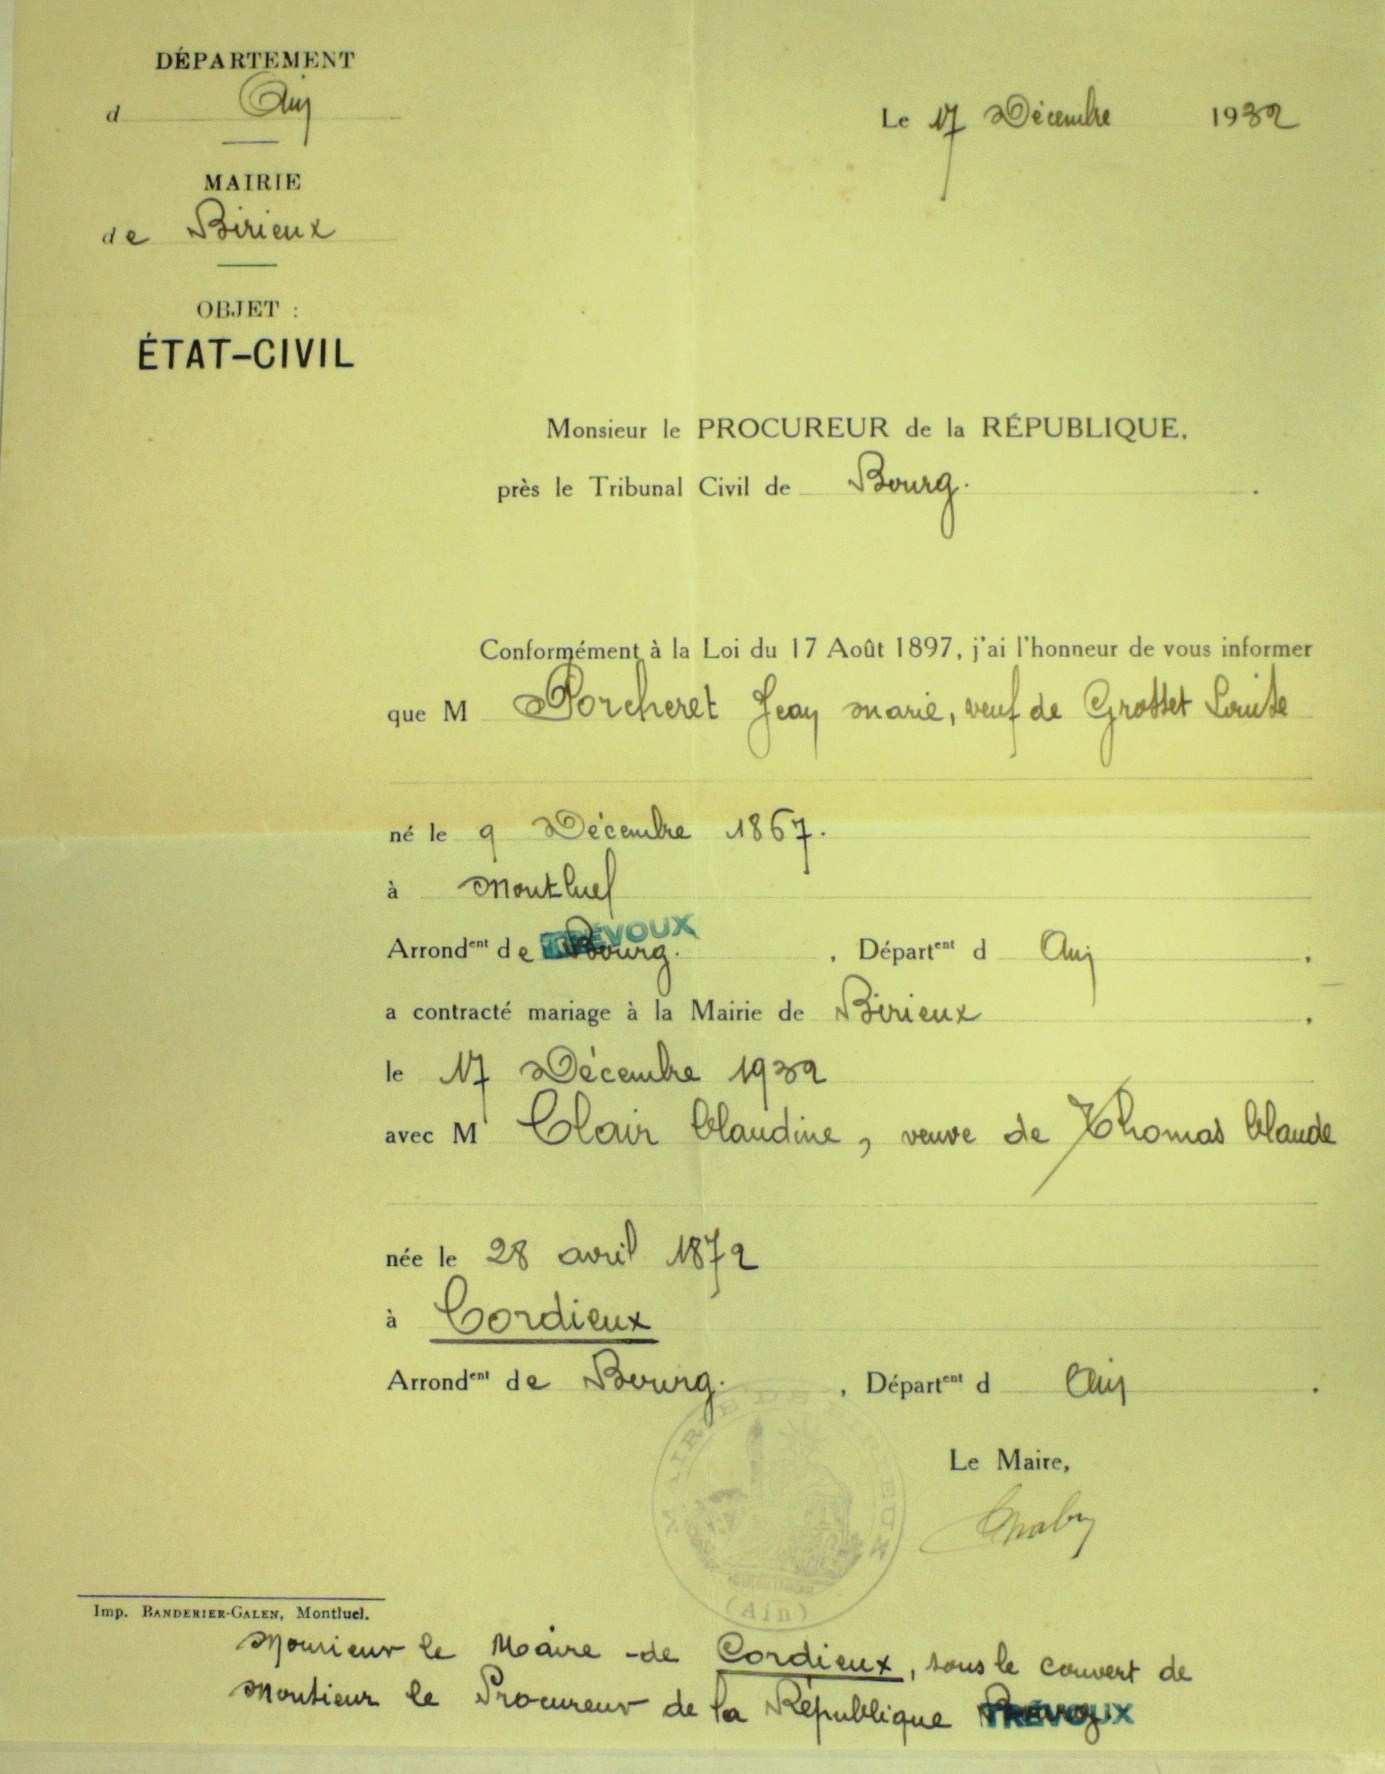 DÉPARTEMENT
d Ain
MAIRIE
de Birieux
OBJET :
ÉTAT-CIVIL
Le 17 Décembre 1932
Monsieur le PROCUREUR de la RÉPUBLIQUE,
près le Tribunal Civil de Bourg.
Conformément à la Loi du 17 Août 1897, j'ai l'honneur de vous informer
que M Porcheret Jean marie, veuf de Grosset Louise
né le 9 Décembre 1867.
à Montluel
Arrondent de Bourg. TRÉVOUX , Départent d Ain .
a contracté mariage à la Mairie de Birieux .
le 17 Décembre 1932
avec M Clair Claudine, veuve de Thomas Claude
née le 28 avril 1872
à Cordieux
Arrondent de Bourg. , Départent d Ain .
Le Maire,
MAIRIE DE BIRIEUX
(Ain)
Imp. BANDERIER-GALEN, Montluel.
Monsieur le Maire de Cordieux, sous le couvert de
Monsieur le Procureur de la République Bourg. TRÉVOUX